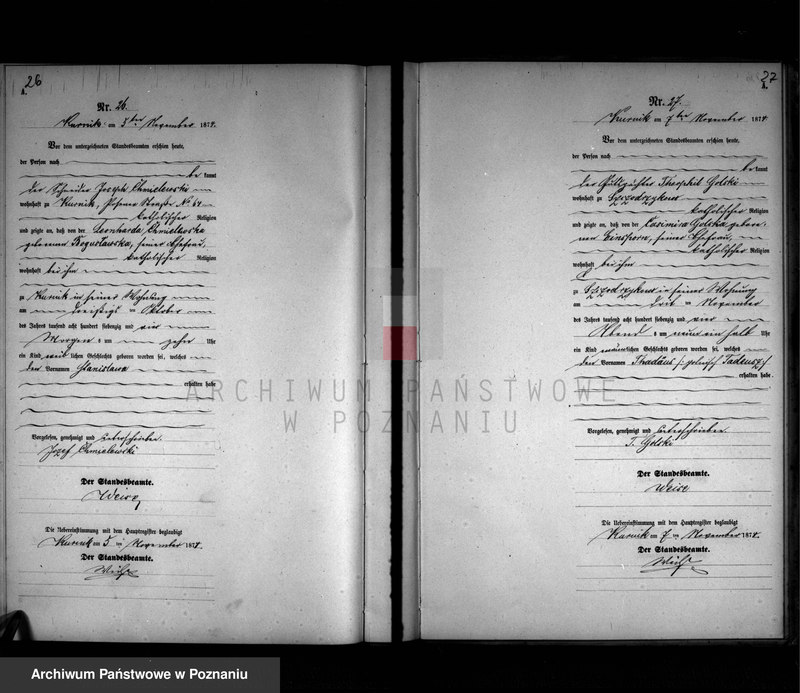 26
A.
Nr. 26.
Kurnik am 5ten November 1874.
Vor dem unterzeichneten Standesbeamten erschien heute,
der Person nach
be kannt
der Schneider Joseph Chmielewski
wohnhaft zu Kurnik, Posener Strasse No 64
katholischer Religion
und zeigte an, daß von der Leonharda Chmielewska
geborenen Bogusławska, seiner Ehefrau,
katholischer Religion
wohnhaft bei ihm
zu Kurnik in seiner Wohnung
am dreißigsten Oktober
des Jahres tausend acht hundert siebenzig und vier
Morgens um zehn Uhr
ein Kind weib lichen Geschlechts geboren worden sei, welches
den Vornamen Stanisława
erhalten habe
Vorgelesen, genehmigt und unterschrieben.
Jozef Chmielewski
Der Standesbeamte.
Weise
Die Uebereinstimmung mit dem Hauptregister beglaubigt
Kurnik am 5. ten November 1874.
Der Standesbeamte.
Weise
27
A.
Nr. 27.
Kurnik am 7ten November 1874
Vor dem unterzeichneten Standesbeamten erschien heute,
der Person nach
be kannt
der Gutspächter Theophil Golski
wohnhaft zu
katholischer Religion
und zeigte an, daß von der Casimira Golska gebore-
nen seiner Ehefrau,
katholischer Religion
wohnhaft bei ihm
zu in seiner Wohnung
am drit ten November
des Jahres tausend acht hundert siebenzig und vier
Abend s um neun ein halb Uhr
ein Kind männlichen Geschlechts geboren worden sei, welches
den Vornamen Thadäus /: polnisch Tadeusz :/
erhalten habe
Vorgelesen, genehmigt und unterschrieben.
T. Golski
Der Standesbeamte.
Weise
Die Uebereinstimmung mit dem Hauptregister beglaubigt
Kurnik am 7 ten November 1874.
Der Standesbeamte.
Weise
ARCHIWUM PAŃSTWOWE
W POZNANIU
Archiwum Państwowe w Poznaniu